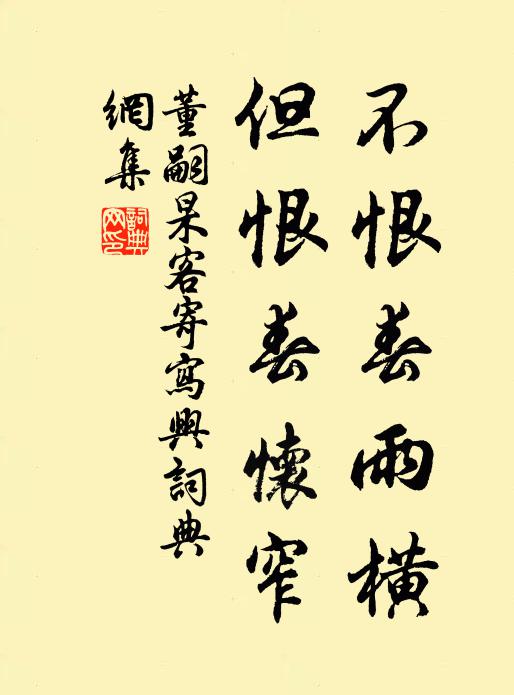 不恨春雨橫
但恨春懷窄
董嗣杲客寄寫興詞典
網集
詞典網印